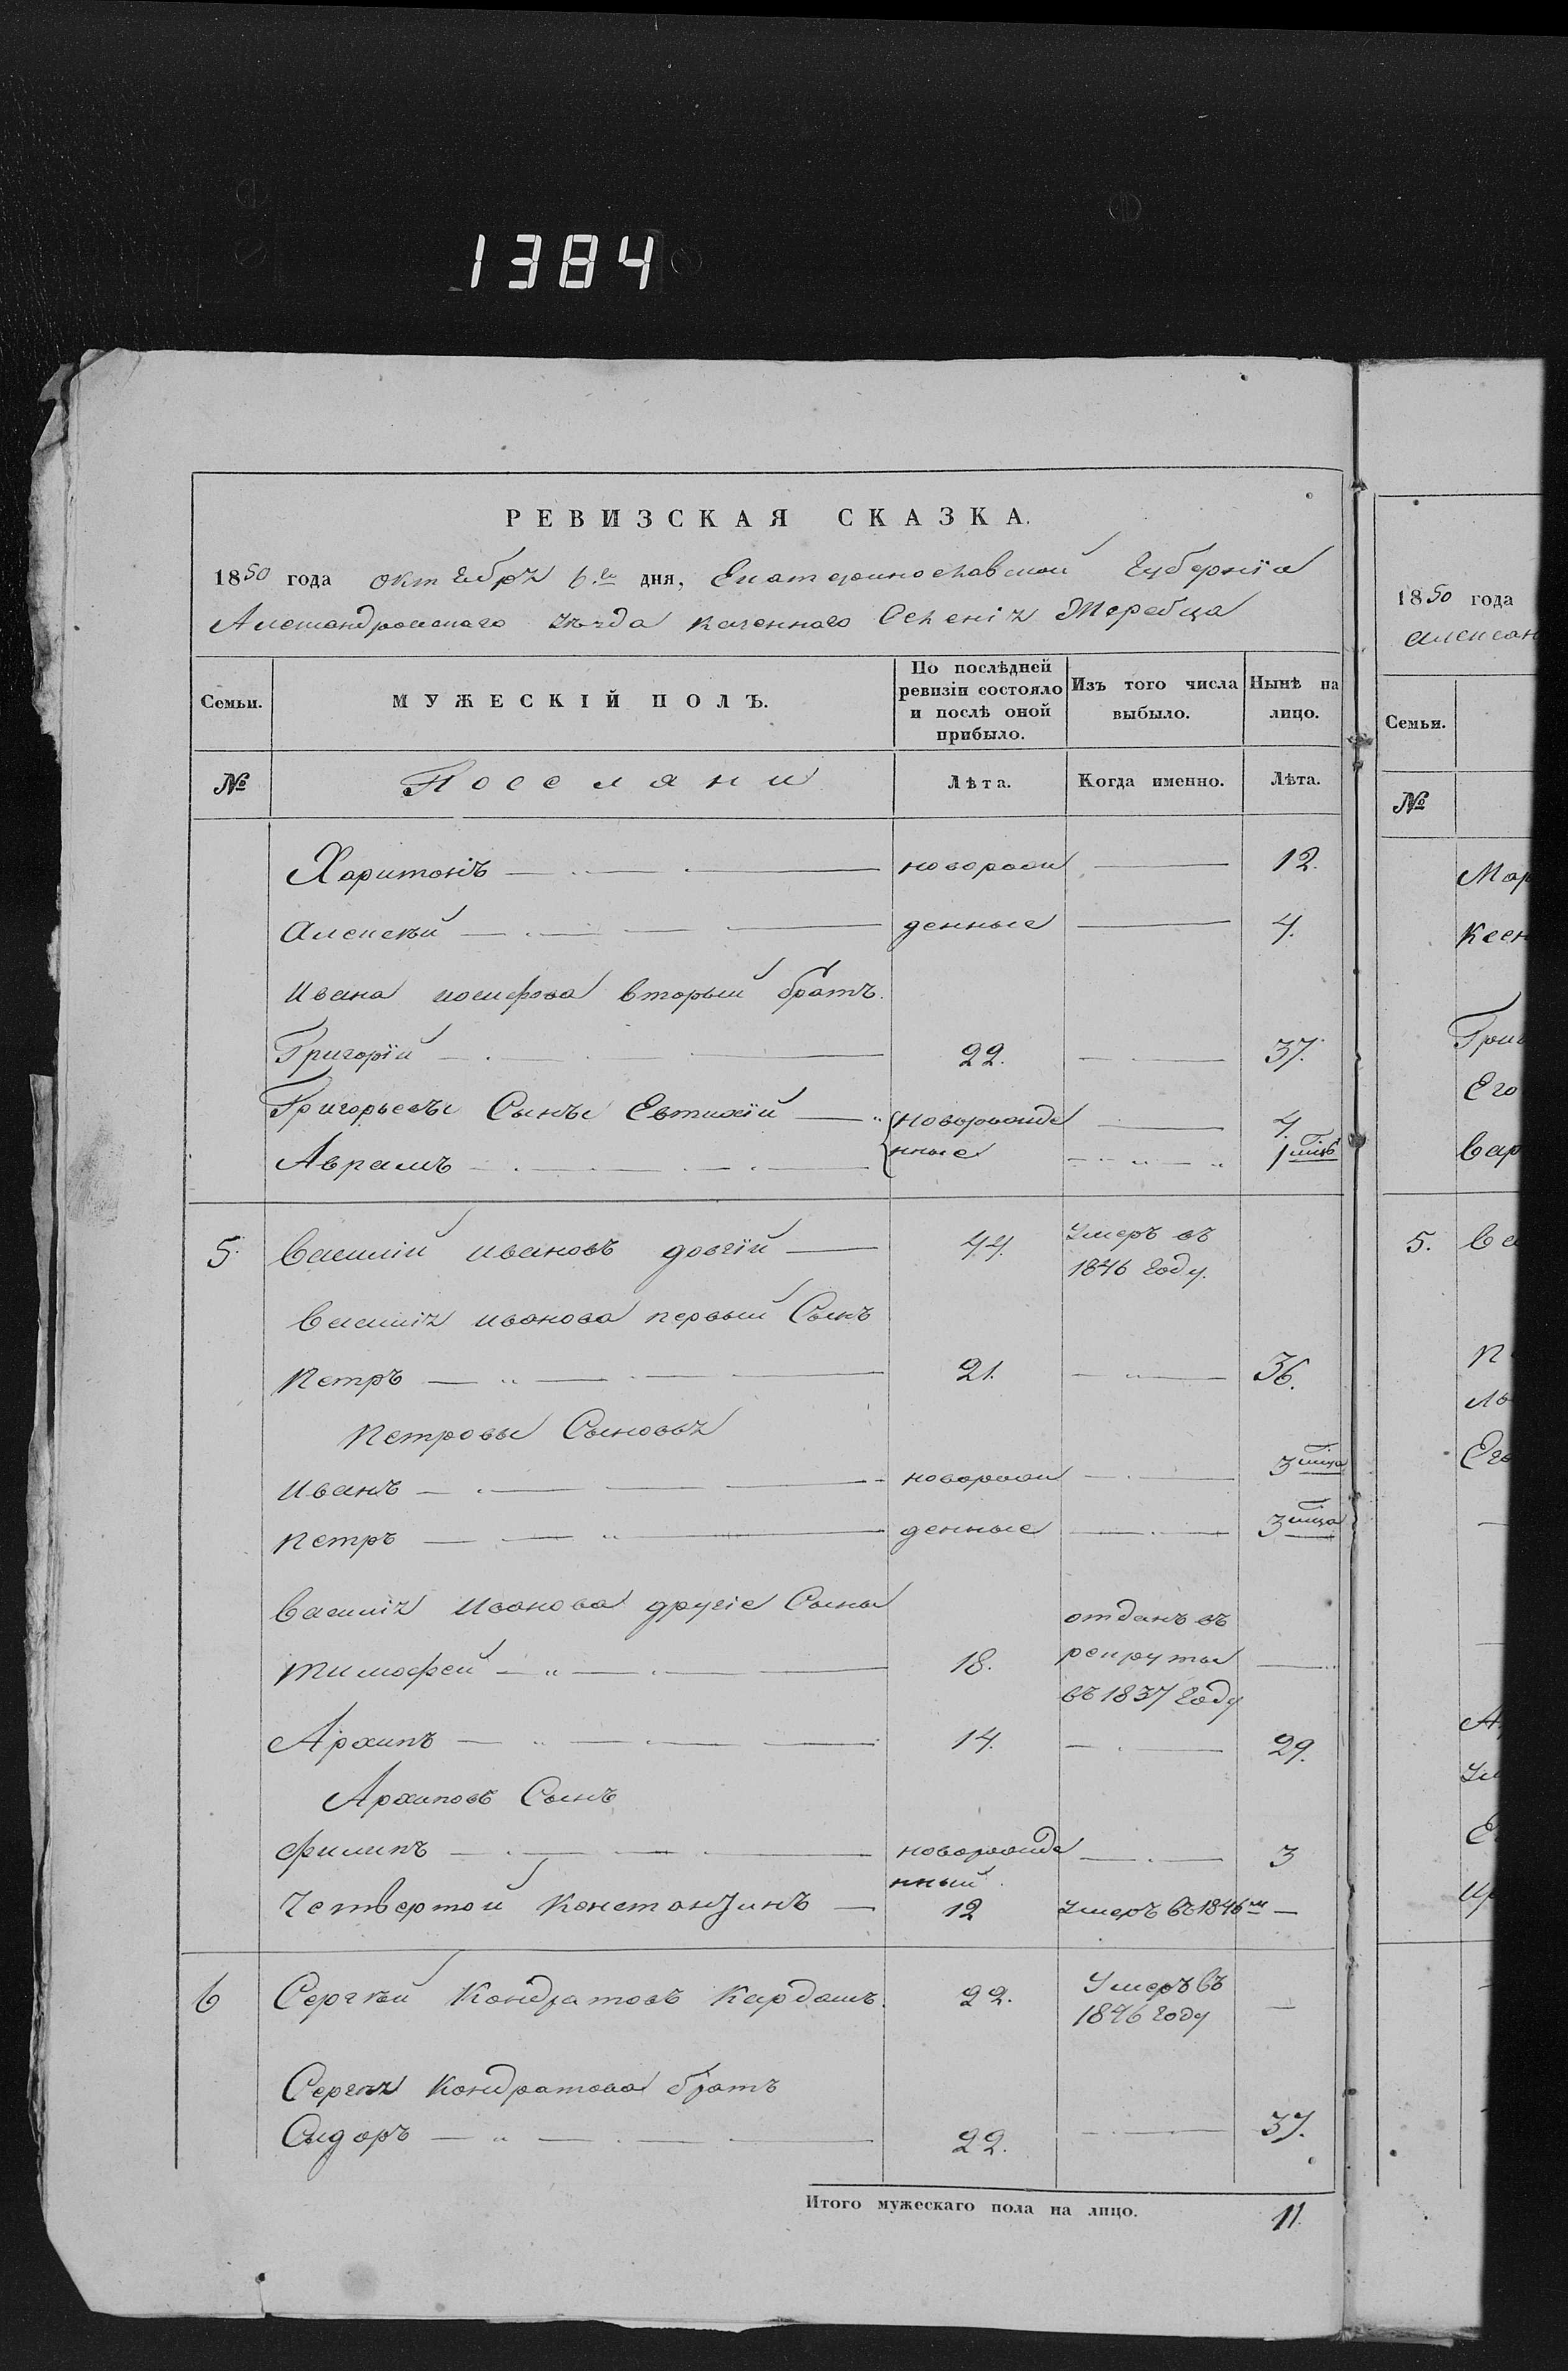 1384
РЕВИЗСКАЯ СКАЗКА.
1850 года октября 6.го дня, Екатеринославской Губерніи
Александровскаго уѣзда казеннаго Селенія Жеребца
Семьи. МУЖЕСКІЙ ПОЛЪ. По послѣдней ревизіи состояло и послѣ оной прибыло. Изъ того числа выбыло. Нынѣ на лицо.
№ Поселяни Лѣта. Когда именно. Лѣта.
Харитонъ — новорож — 12.
Алексѣй — денные — 4.
Ивана иосифова вторый братъ.
Григорій — 22. — 37.
Григорьевы Сыны Евтихій — новорожде — 4.
Аврамъ — нные — 1 мѣс
5. Василій ивановъ довгій — 44. Умеръ въ
1846 году.
Василія иванова первый Сынъ
Петръ — 21. — 36.
Петровы Сыновья
Иванъ — новорож — 3 мѣца
Петръ — денные — 3 мѣца
Василія Иванова другіе Сыны
Тимофей — 18. отданъ въ
рекруты —
въ 1837 году
Архипъ — 14. — 29.
Архиповъ Сынъ
Филипъ — новорожде — 3
нный
Четвертой Константинъ — 12 Умеръ въ 1846 м —
6 Сергѣй Кондратовъ Кардашъ. 22. Умеръ въ
1846 году —
Сергѣя Кондратова братъ
Сидоръ — 22. — 37.
Итого мужескаго пола на лицо. 11.
1850 года
алексан
Семьи.
№
Мар
Ксен
Григ
Его
Вар
5. Ва